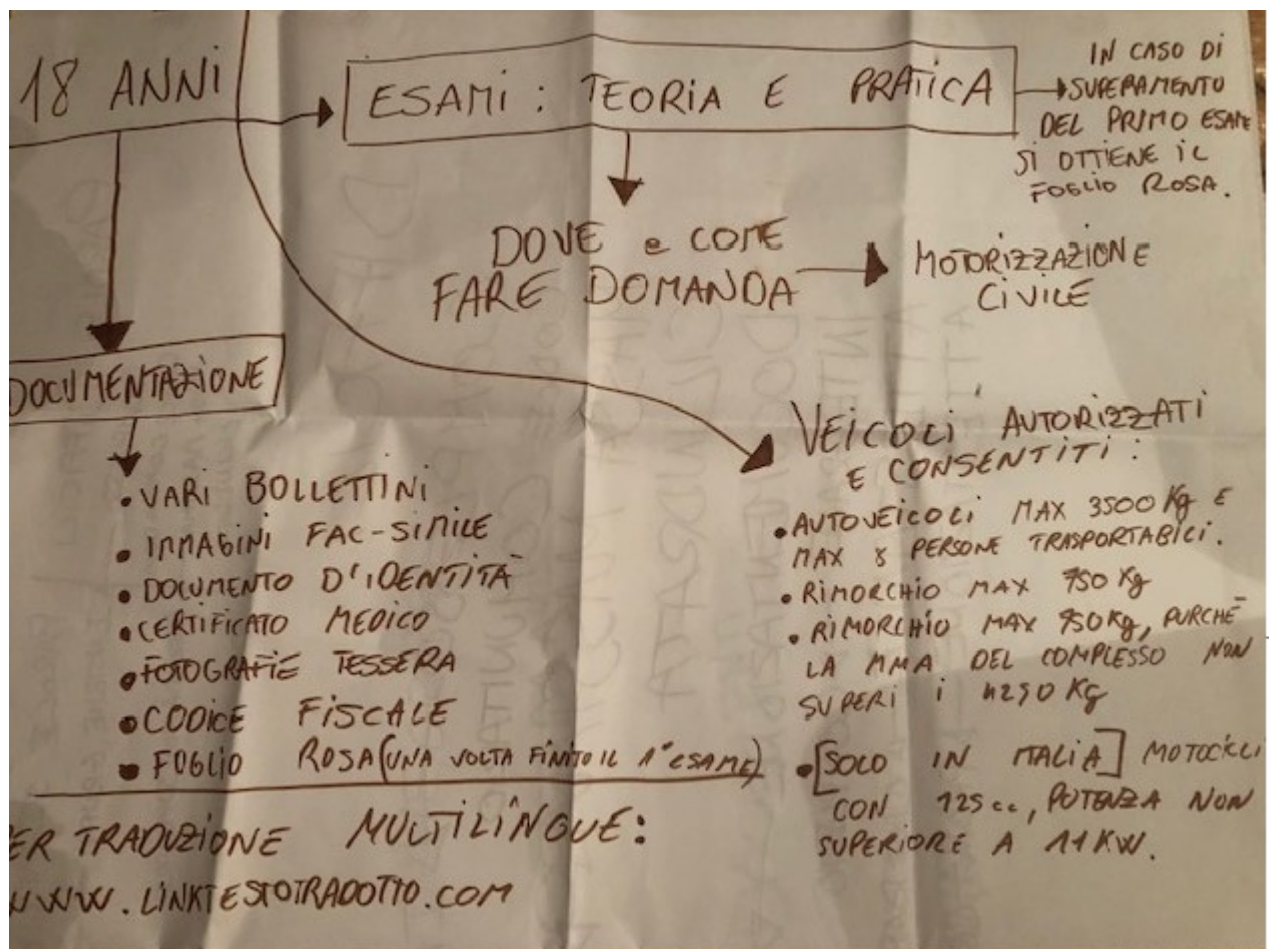 18 ANNI
ESAMI: TEORIA E PRATICA
IN CASO DI
SUPERAMENTO
DEL PRIMO ESAME
SI OTTIENE IL
FOGLIO ROSA.
DOVE e COME
FARE DOMANDA
MOTORIZZAZIONE
CIVILE
DOCUMENTAZIONE
• VARI BOLLETTINI
• IMMAGINI FAC-SIMILE
• DOCUMENTO D'IDENTITÀ
• CERTIFICATO MEDICO
• FOTOGRAFIE TESSERA
• CODICE FISCALE
• FOGLIO ROSA (UNA VOLTA FINITO IL 1° ESAME)
VEICOLI AUTORIZZATI
E CONSENTITI:
• AUTOVEICOLI MAX 3500 Kg E
MAX 8 PERSONE TRASPORTABILI.
• RIMORCHIO MAX 750 Kg
• RIMORCHIO MAX 750 Kg, PURCHÉ
LA MMA DEL COMPLESSO NON
SUPERI i 4250 Kg
• [SOLO IN ITALIA] MOTOCICLI
CON 125 cc, POTENZA NON
SUPERIORE A 11 KW.
ER TRADUZIONE MULTILINGUE:
WWW.LINKTESTOTRADOTTO.COM